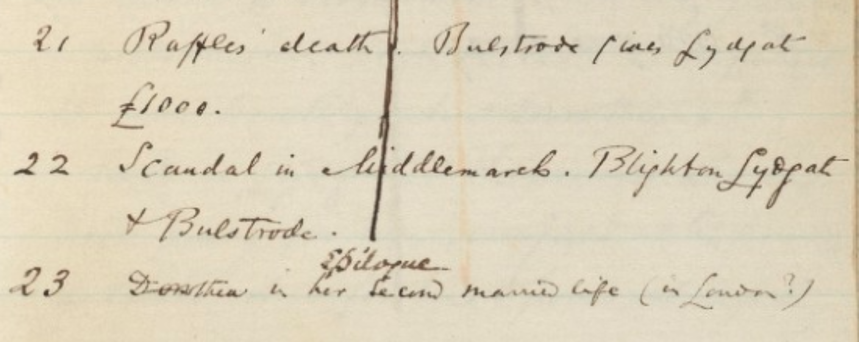 21 Raffles' death. Bulstrode gives Lydgate
£1000.
22 Scandal in Middlemarch. Blight on Lydgate
& Bulstrode.
Epilogue
23 Dorothea in her second married life (in London?)